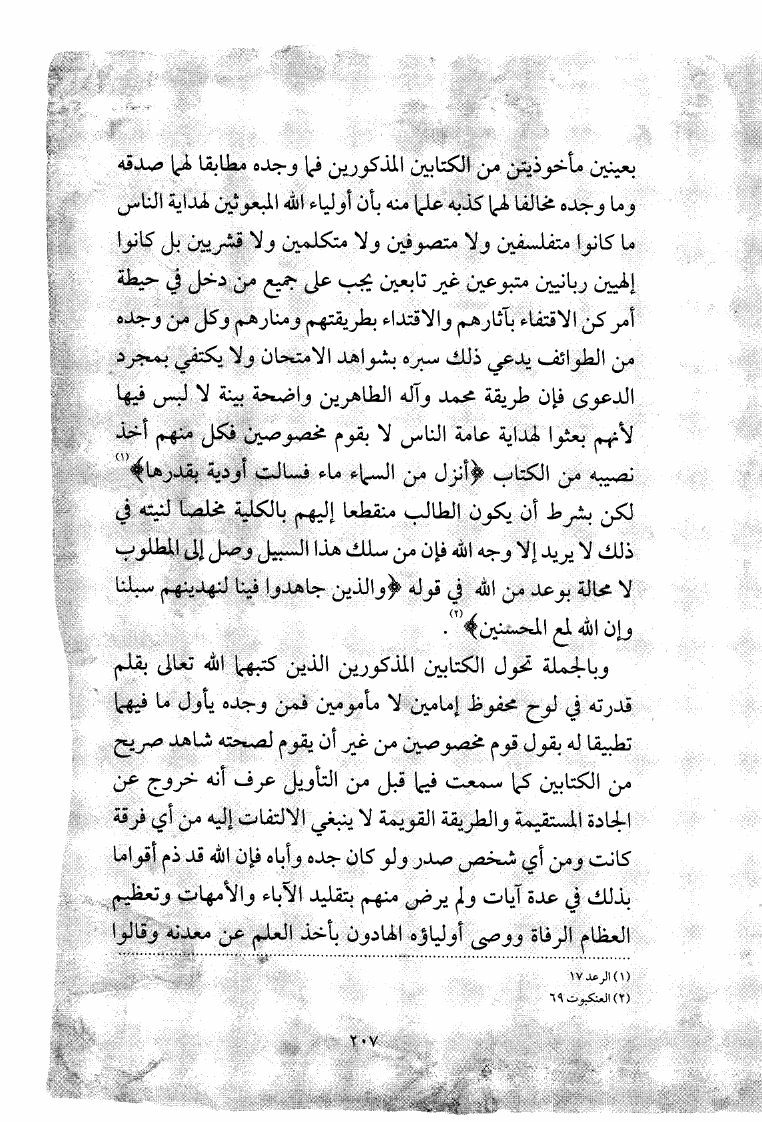 بعينين مأخوذيتن من الكتابين المذكورين فما وجده مطابقا لهما صدقه
وما وجده مخالفا لهما كذبه علما منه بأن أولياء الله المبعوثين لهداية الناس
ما كانوا متفلسفين ولا متصوفين ولا متكلمين ولا قشريين بل كانوا
إلهيين ربانيين متبوعين غير تابعين يجب على جميع من دخل في حيطة
أمر كن الاقتفاء بآثارهم والاقتداء بطريقتهم ومنارهم وكل من وجده
من الطوائف يدعي ذلك سبره بشواهد الامتحان ولا يكتفي بمجرد
الدعوى فإن طريقة محمد وآله الطاهرين واضحة بينة لا لبس فيها
لأنهم بعثوا لهداية عامة الناس لا بقوم مخصوصين فكل منهم أخذ
نصيبه من الكتاب ﴿أنزل من السماء ماء فسالت أودية بقدرها﴾(١)
لكن بشرط أن يكون الطالب منقطعا إليهم بالكلية مخلصا لنيته في
ذلك لا يريد إلا وجه الله فإن من سلك هذا السبيل وصل إلى المطلوب
لا محالة بوعد من الله في قوله ﴿والذين جاهدوا فينا لنهدينهم سبلنا
وإن الله لمع المحسنين﴾(٢).
وبالجملة تحول الكتابين المذكورين الذين كتبهما الله تعالى بقلم
قدرته في لوح محفوظ إمامين لا مأمومين فمن وجده يأول ما فيهما
تطبيقا له بقول قوم مخصوصين من غير أن يقوم لصحته شاهد صريح
من الكتابين كما سمعت فيما قبل من التأويل عرف أنه خروج عن
الجادة المستقيمة والطريقة القويمة لا ينبغي الالتفات إليه من أي فرقة
كانت ومن أي شخص صدر ولو كان جده وأباه فإن الله قد ذم أقواما
بذلك في عدة آيات ولم يرض منهم بتقليد الآباء والأمهات وتعظيم
العظام الرفاة ووصى أولياؤه الهادون بأخذ العلم عن معدنه وقالوا
(١) الرعد ١٧
(٢) العنكبوت ٦٩
٢٠٧